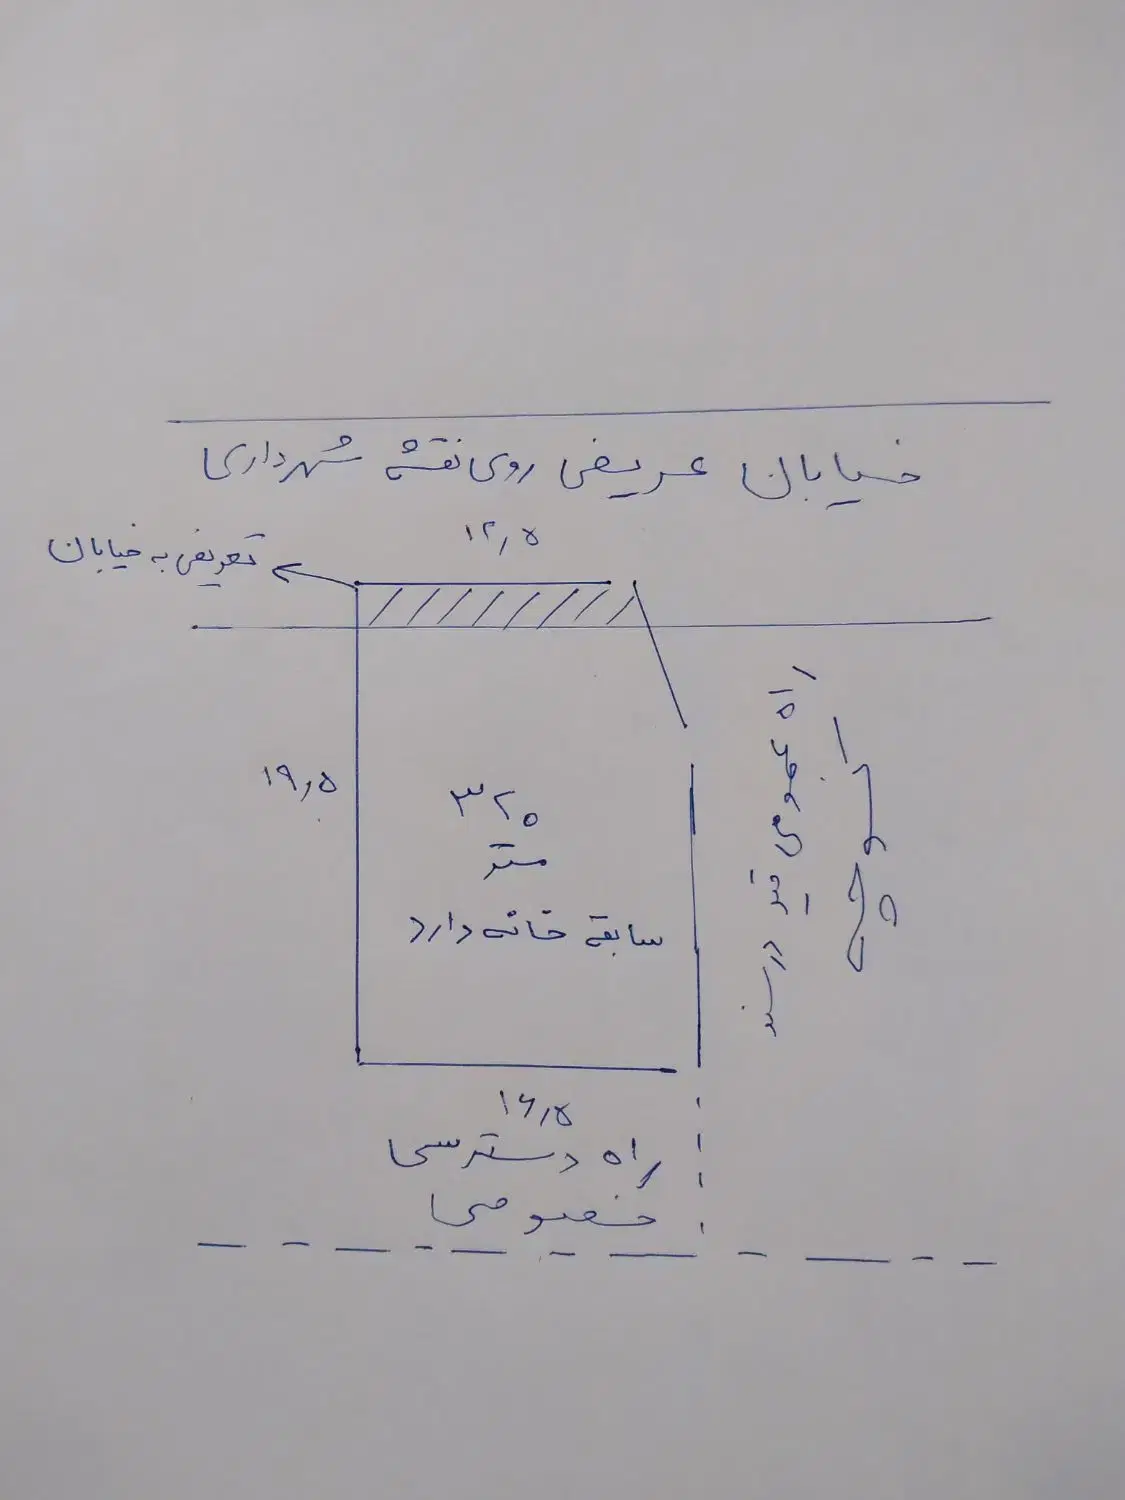 خیابان عریض روی نقشه شهرداری
۱۲٫۵
تعریض به خیابان
۱۹٫۵
۳۲۰
متر
سابقه خانه دارد
راه عمومی قید درسند
کوچه
۱۶٫۵
راه دسترسی
خصوصی